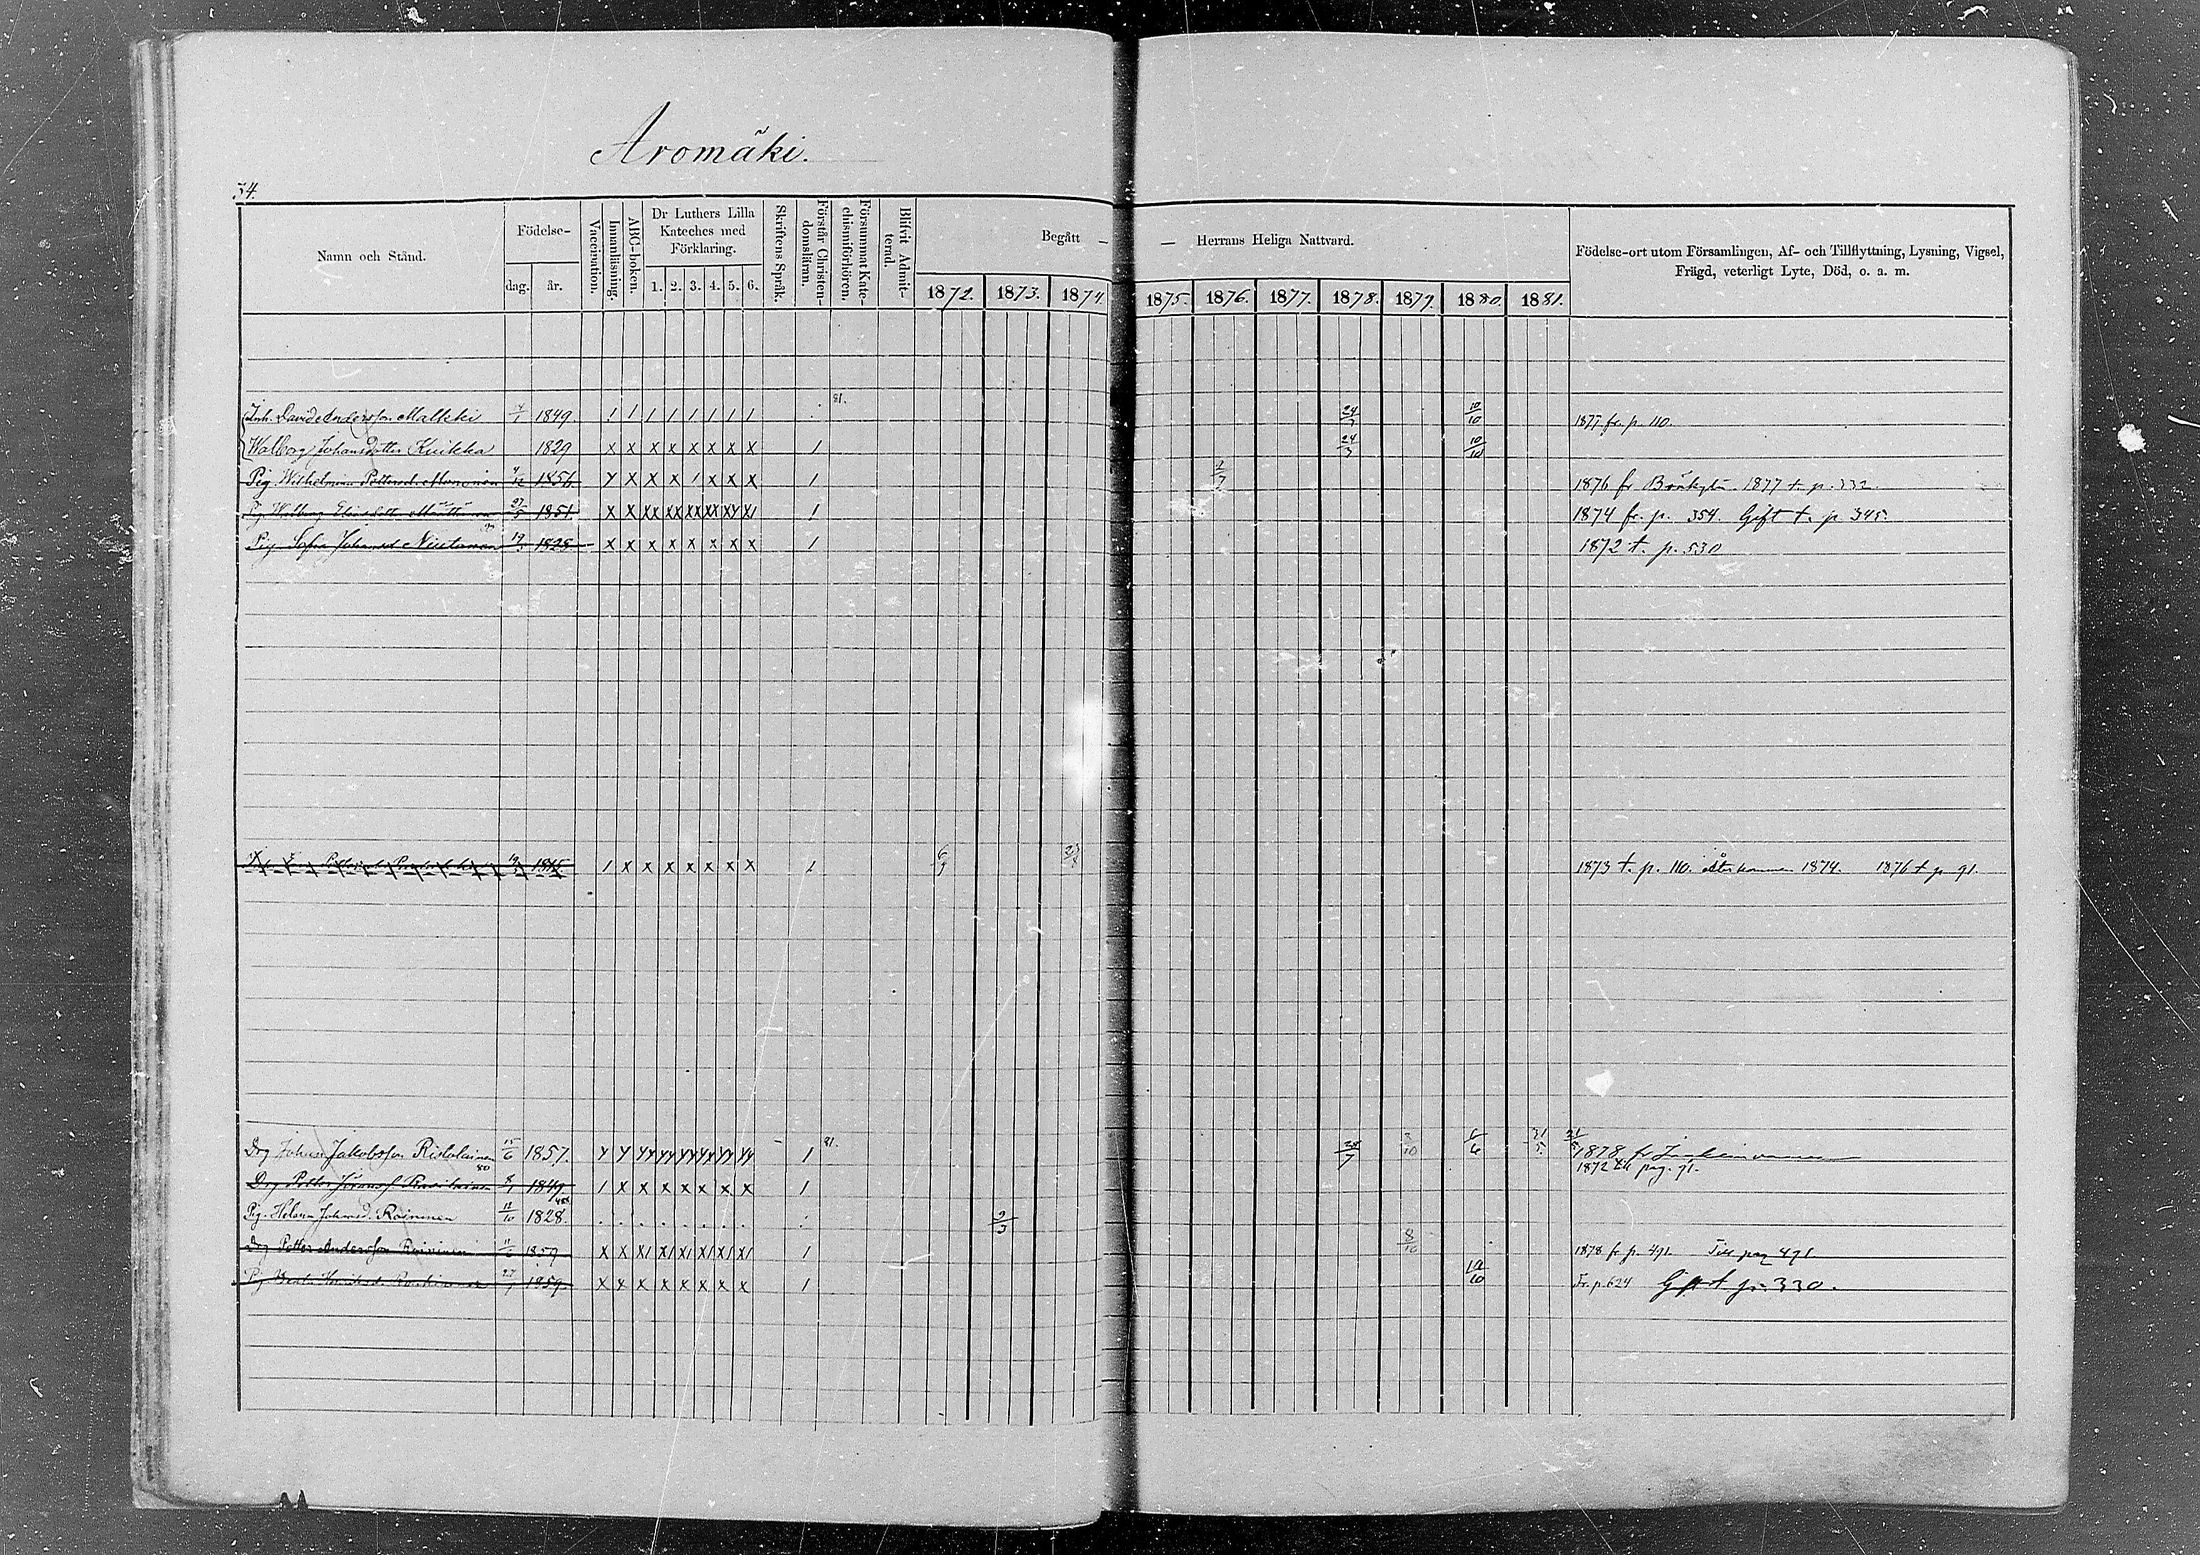 Aromäki.
34.
Namn och Stånd.
Födelse-
dag. år.
Vaccination.
Innanläsning.
ABC-boken.
Dr Luthers Lilla Kateches med Förklaring.
1. 2. 3. 4. 5. 6.
Skriftens Språk.
Förstår Christen-domsläran.
Försummat Kate-chismiförhören.
Blifvit Admit-terad.
Begått — — Herrans Heliga Nattvard.
1872. 1873. 1874. 1875. 1876. 1877. 1878. 1879. 1880. 1881.
Födelse-ort utom Församlingen, Af- och Tillflyttning, Lysning, Vigsel,
Frägd, veterligt Lyte, Död, o. a. m.
Inh. David Andersson Malkki 4/1 1849. / / / / / / / / 81. 24/3 10/10 1877 fr. p. 110.
Walborg Johansdotter Kuikka 1829 x x x x x x x x / 24/3 10/10
Pig. Wilhelmina Pettersd. 4/12 1856 x x x x / x x x / 1876 fr 1877 t. p. 332.
Pig Walborg 27/5 1851. x x xx xx xx xx xx x/ / 1874 fr. p. 354. Gift t. p 345.
Pig. Sofia Johansd 1828 x x x x x x x x / 1872 t. p. 530
1845 / x x x x x x x / 6/9 1873 t. p. 110. Återkommen 1874. 1876 t p 91.
Drg Johan Jakobsson Ristolainen 15/6 1857. / 81. 8/10 6/6 31/5 1878 fr
1872 till pag. 71.
Drg Petter 8/1 1849 / x x x x x x x /
Pig. Helena Johansd. Roininen 11/10 1828. 2/3
Drg Petter Andersson Roininen 11/6 1859 x x x/ x/ x/ x/ x/ x/ / 8/10 1878 fr p. 491. Till pag 491
Pig 27/7 1859. x x x x x x x x / 10/10 Fr. p. 624 Gift t. p. 330.